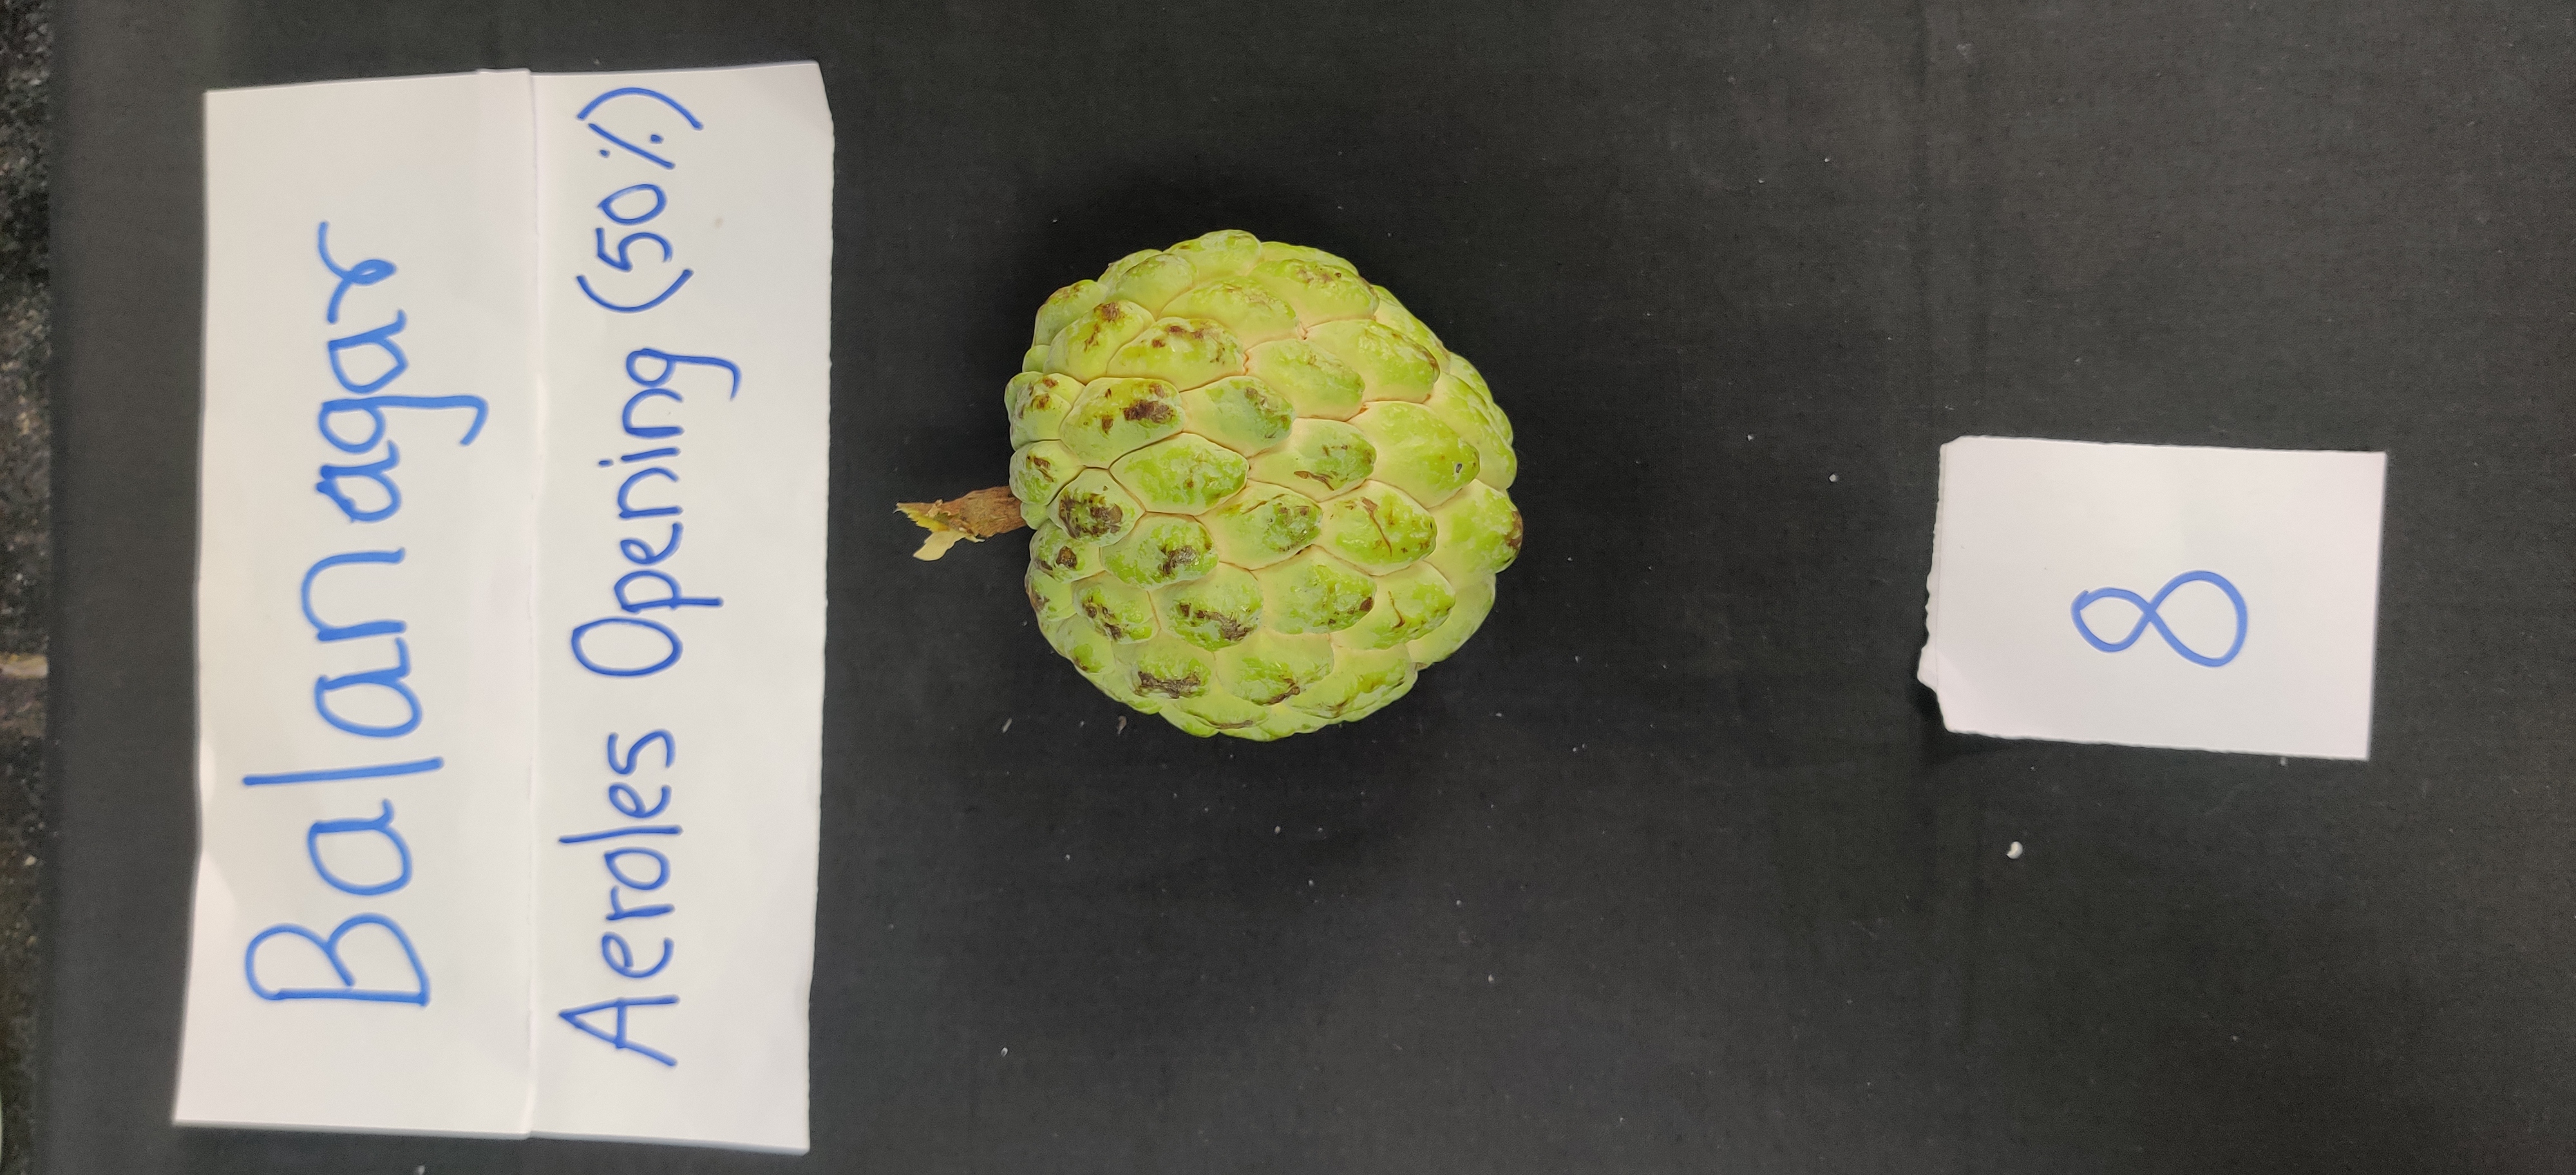 Balanagar
Aeroles Opening (50%)
8